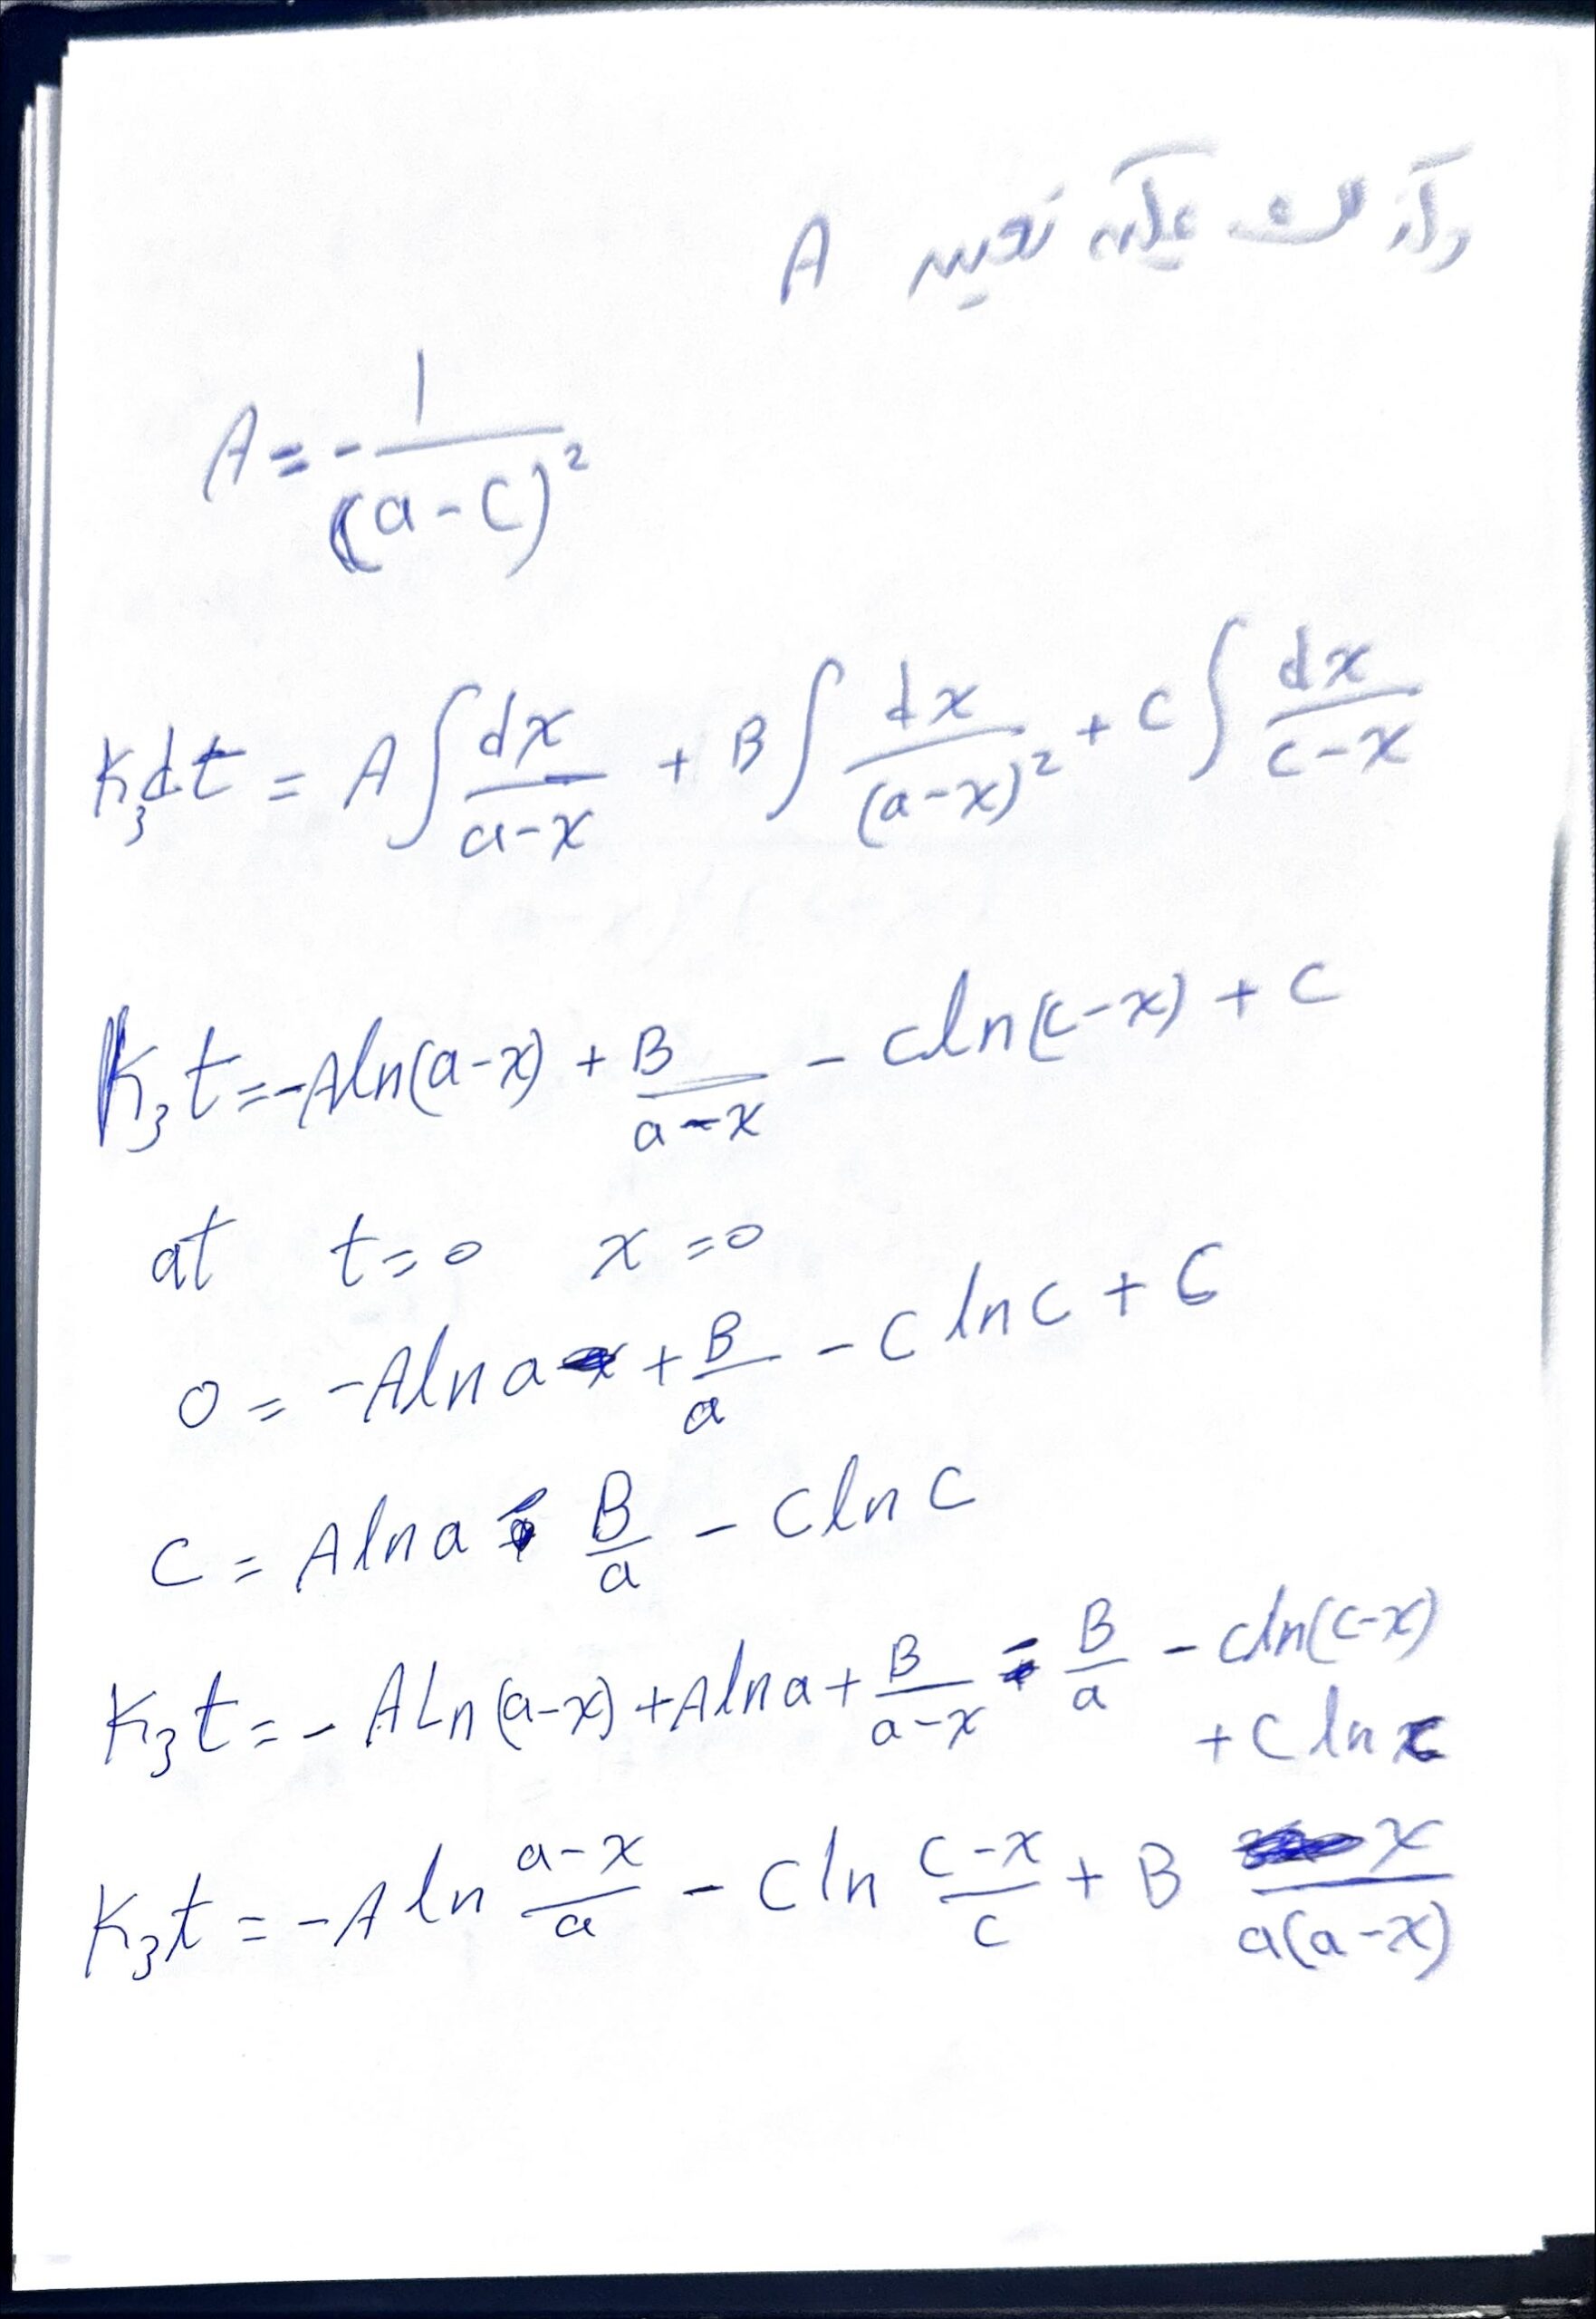 وكذلك يمكن تعيين A
A = - 1 / (a - C)²
K₃dt = A ∫ dx / (a-x) + B ∫ dx / (a-x)² + C ∫ dx / (c-x)
K₃t = -A ln(a-x) + B / (a-x) - C ln(c-x) + C
at t = 0 x = 0
0 = -A ln a + B / a - C ln c + C
C = A ln a - B / a - C ln C
K₃t = - A Ln (a-x) + A ln a + B / (a-x) - B / a - C ln(c-x)
+ C ln c
K₃t = -A ln (a-x) / a - C ln (c-x) / c + B x / a(a-x)